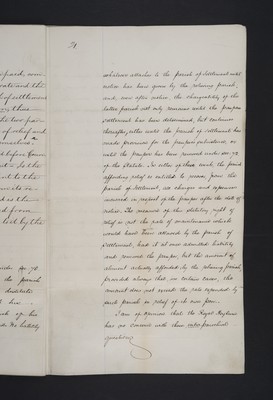 71
whatever attaches to the parish of settlement until
notice has been given by the relieving parish,
and, even after notice, the chargeability of the
latter parish not only remains until the pauper's
settlement has been determined, but continues
thereafter either until the parish of settlement has
made provision for the pauper's subsistence, or
until the pauper has been removed under sec. 72
of the Statute. In either of these cases, the parish
affording relief is entitled to recover, from the
parish of settlement, all charges and expenses
incurred in respect of the pauper after the date of
notice. The measure of this statutory right of
relief is not the rate of maintenance which
would have been allowed by the parish of
settlement, had it at once admitted liability
and removed the pauper, but the amount of
aliment actually afforded by the relieving parish,
provided always that, in certain cases, the
amount does not exceed the rate expended by
such parish in relief of its own poor.
I am of opinion that the Royal Asylum
has no concern with these inter-parochial
questions.
paid, even
of settlement
the two par
of relief and
themselves.
as the
from
lost by the
under sec 70
the parish
destitute
his